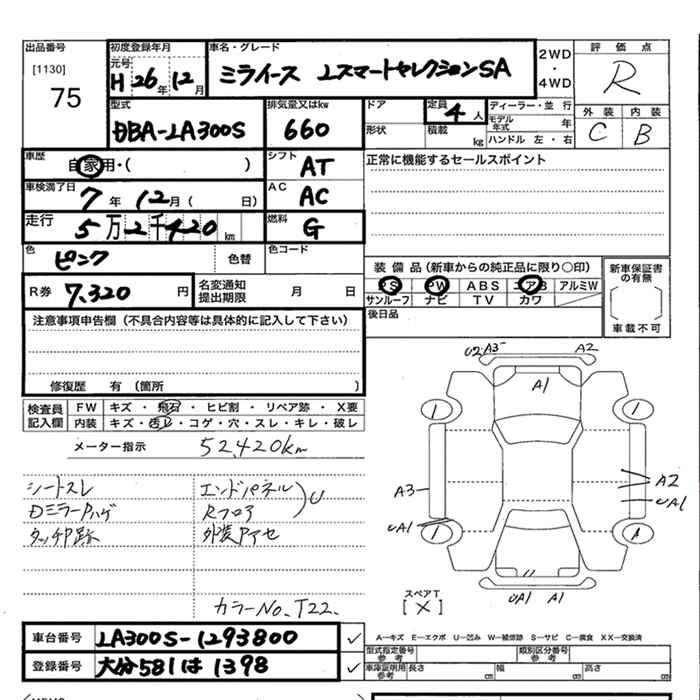 出品番号
[1130]
75
初度登録年月
元号
H 26年 12月
車名・グレード
ミライース LスマートセレクションSA
2WD
・
4WD
評価点
R
外装 内装
C B
型式
DBA-LA300S
排気量又はkw
660
ドア
形状
定員
4人
積載
kg
ディーラー・並行
モデル年式 年
ハンドル 左・右
車歴
自家用・( )
シフト
AT
正常に機能するセールスポイント
車検満了日
7年 12月 ( 日)
AC
AC
走行
5万2千420km
燃料
G
色
ピンク
色替
色コード
R券
7,320円
名変通知
提出期限
月 日
装備品 (新車からの純正品に限り○印)
PS PW ABS エアB アルミW
サンルーフ ナビ TV カワ
新車保証書
の有無
車載不可
後日品
注意事項申告欄(不具合内容等は具体的に記入して下さい)
修復歴 有 〔箇所 〕
検査員
記入欄
FW キズ・飛石・ヒビ割・リペア跡・X要
内装 キズ・汚レ・コゲ・穴・スレ・キレ・破レ
メーター指示 52,420km
シートスレ
Dミラーハゲ
タッチP跡
エンドパネル
Rフロア
U
外装Pアセ
カラーNo. T22.
U2 A3 A2
A1
1 1
A3
A2
UA1
UA1
1 1
UA1 A1
スペアT
[×]
A―キズ E―エクボ U―凹み W―補修跡 S―サビ C―腐食 XX―交換済
車台番号 LA300S-1293800 ✓
登録番号 大分581は1398 ✓
型式指定番号
参考
類別区分番号
参考
車庫証明用
参考
長さ cm 幅 cm 高さ cm